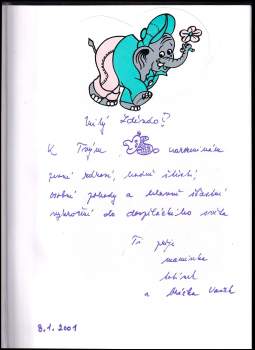 Milý Zdéndo!
K Tvým narozeninám
pevné zdraví, hodně štěstí,
osobní pohody a hlavně šťastné
vykročení do dospěláckého světa
Ti přeje
maminka
tatínek
a Vašek
8.1.2001